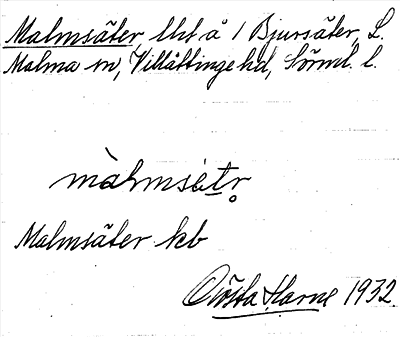 Malmsäter, lht å 1 Bjursäter, L.
Malma sn, Villåttinge hd, Sörml. l.
màlmsètr̥
Malmsäter kb
Gösta Harne 1932